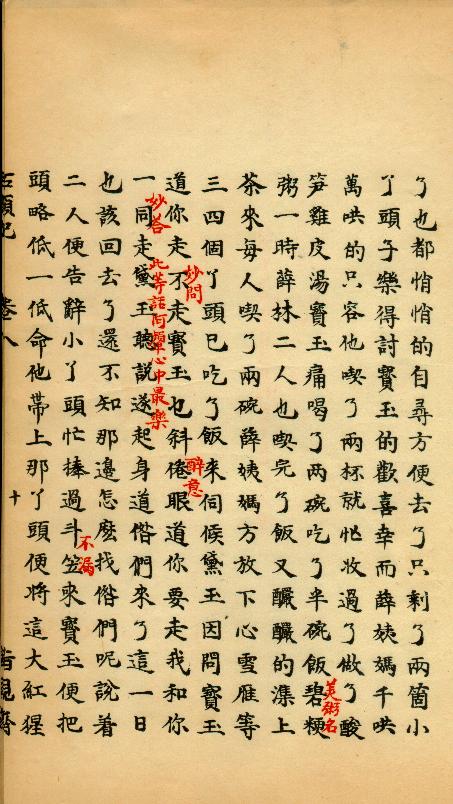 了也都悄悄的自尋方便去了只剩了兩箇小
丫頭子樂得討寳玉的歡喜幸而薛姨媽千哄
萬哄的只容他喫了兩杯就忙收過了做了酸
笋雞皮湯寳玉痛喝了两碗吃了半碗飯碧粳
美粥名
粥一時薛林二人也喫完了飯又釅釅的潗上
茶來每人喫了兩碗薛姨媽方放下心雪雁等
三四個丫頭已吃了飯來伺候黛玉因問寳玉
妙問
道你走不走寳玉乜斜倦眼道你要走我和你
醉意
妙答 此等話阿顰心中最樂
一同走黛玉聽說遂起身道偺們來了這一日
也該回去了還不知那邊怎麽找偺們呢說着
二人便告辭小丫頭忙捧過斗笠來寳玉便把
不漏
頭略低一低命他帶上那丫頭便將這大紅猩
石頭記 卷八 十